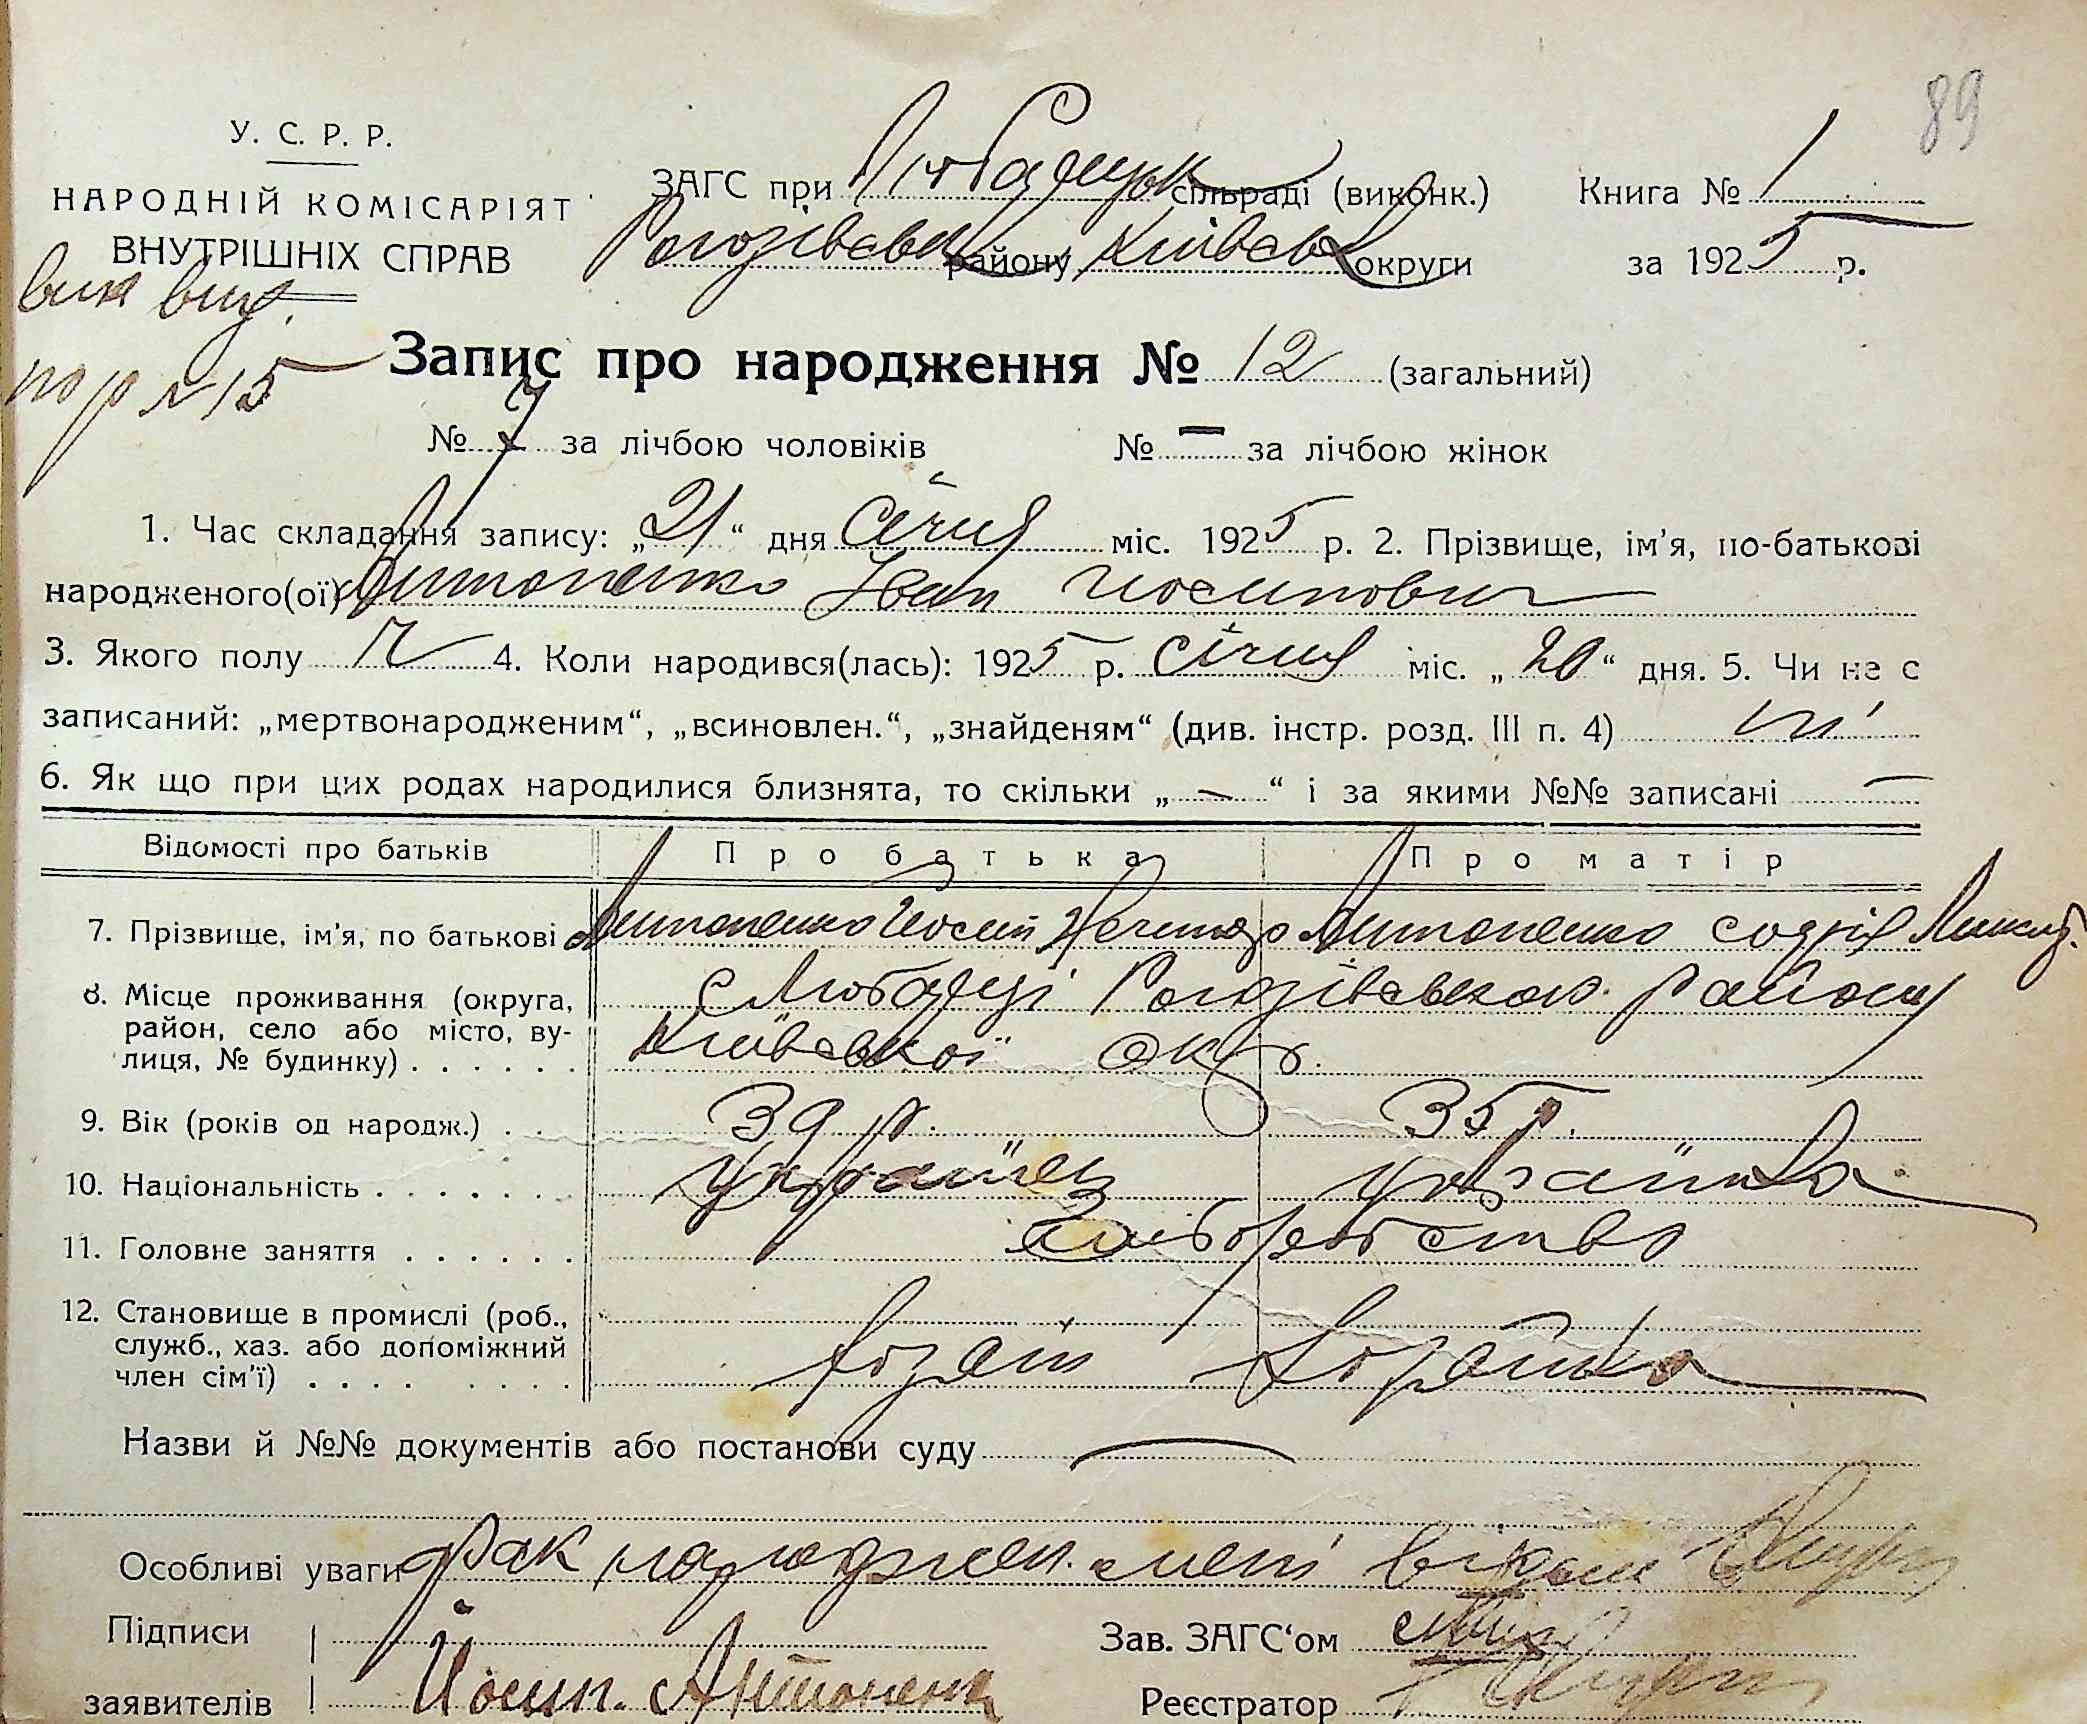 89
У. С. Р. Р.
НАРОДНІЙ КОМІСАРІЯТ
ВНУТРІШНІХ СПРАВ
ЗАГС при Любарецьк сільраді (виконк.)
Рогозівськ району, Київськ округи
Книга № 1
за 1925 р.
вик вид.
пор № 15
Запис про народження № 12 (загальний)
№ 7 за лічбою чоловіків № — за лічбою жінок
1. Час складання запису: „21“ дня Січня міс. 1925 р. 2. Прізвище, ім'я, по-батькові
народженого(ої) Антоненко Іван Йосипович
3. Якого полу ч 4. Коли народився(лась): 1925 р. Січня міс. „20“ дня. 5. Чи не є
записаний: „мертвонародженим“, „всиновлен.“, „знайденям“ (див. інстр. розд. III п. 4) ні
6. Як що при цих родах народилися близнята, то скільки „—“ і за якими №№ записані —
Відомості про батьків Про батька Про матір
7. Прізвище, ім'я, по батькові Антоненко Йосип Нечипор Антоненко Софія
8. Місце проживання (округа, с Любарці Рогозівського району
район, село або місто, ву-
лиця, № будинку) . . . . . . Київської окр.
9. Вік (років од народж.) . . 39 р. 35 р.
10. Національність . . . . . . українец українка
11. Головне заняття . . . . . . хліборобство
12. Становище в промислі (роб.,
служб., хаз. або допоміжний хозяїн хозяйка
член сім'ї) . . . . . . . .
Назви й №№ документів або постанови суду —
Особливі уваги Рак народжен. мені відом
Підписи
заявителів Йосип. Антоненк
Зав. ЗАГС'ом
Реєстратор